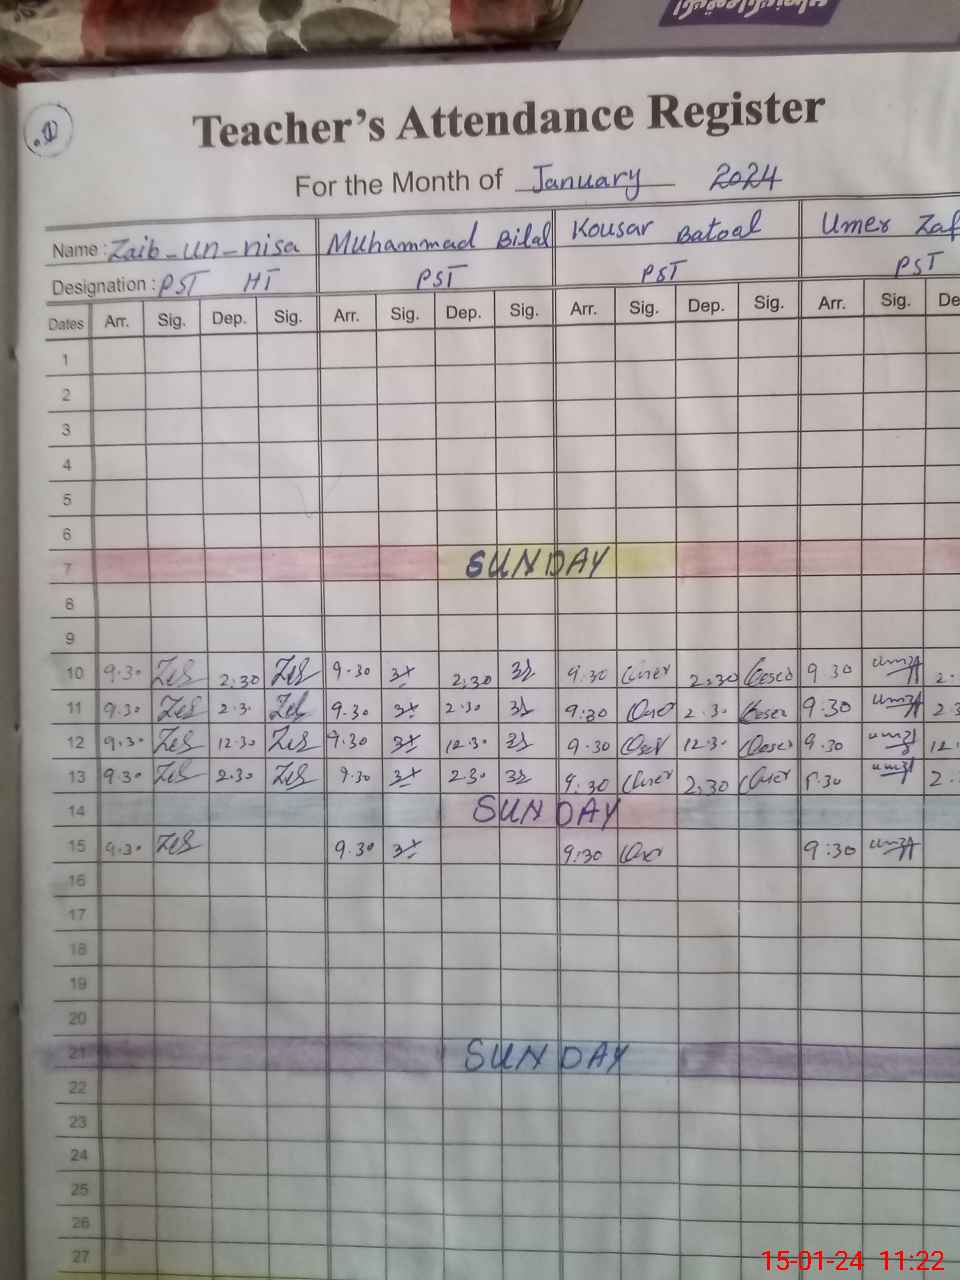 Teacher's Attendance Register
For the Month of January 2024
Name : Zaib-un-nisa Muhammad Bilal Kousar Batoal Umer Zaf
Designation : PST HT PST PST PST
Dates Arr. Sig. Dep. Sig. Arr. Sig. Dep. Sig. Arr. Sig. Dep. Sig. Arr. Sig. De
1
2
3
4
5
6
7 SUNDAY
8
9
10 9.30 2.30 9.30 2.30 9.30 2.30 9.30 2.
11 9.30 2.30 9.30 2.30 9.30 2.30 9.30 2.3
12 9.30 12.30 9.30 12.30 9.30 12.30 9.30 12.
13 9.30 2.30 9.30 2.30 9.30 2.30 2.
14 SUNDAY
15 9.30 9.30 9:30 9:30
16
17
18
19
20
21 SUNDAY
22
23
24
25
26
27
15-01-24 11:22